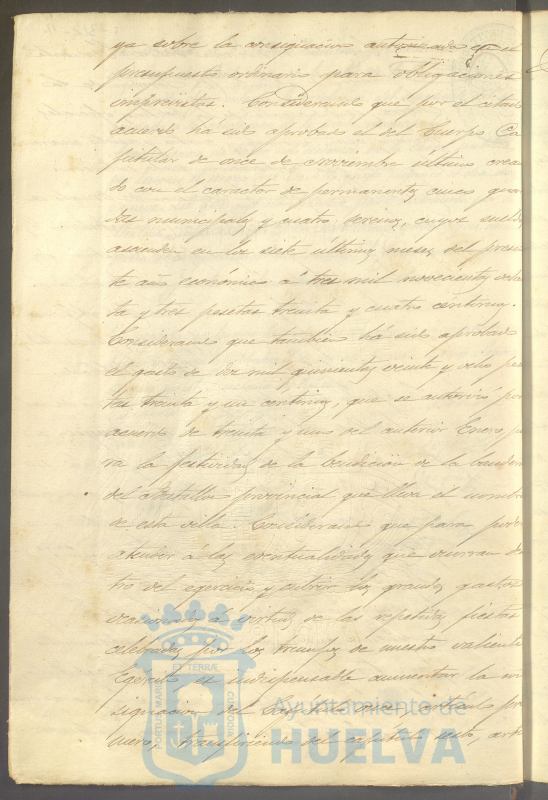 ya sobre la consignacion autorizada en el
presupuesto ordinario para obligaciones
imprevistas. Considerando que por el citado
acuerdo há sido aprobado el del Cuerpo Ca
pitular de once de Noviembre último crean
do con el caracter de permanentes cinco guar
das municipales y cuatro serenos, cuyos sueldos
ascienden en los siete últimos meses del presen
te año económico á tres mil novecientas
ta y tres pesetas treinta y cuatro céntimos.
Considerando que tambien há sido aprobado
el gasto de dos mil quinientas veinte y ocho pe
tas treinta y un centimos, que se autorizó por
acuerdo de treinta y uno del anterior Enero, pa
ra la festividad de la bendicion de la bandera
del Batallon provincial que lleva el nombre
de esta villa. Considerando que para poder
atender á las eventualidades que ocurran den
tro del ejercicio y cubrir los grandes gastos
ocasionados á virtud de las repetidas fiestas
celebradas por los triunfos de nuestro valiente
Egército es indispensable aumentar la con
signacion del capítulo once, artículo pri
mero, transfiriendo del capítulo sesto, artí
PORTUS MARIS ET TERRÆ CUSTODIA
Ayuntamiento de
HUELVA